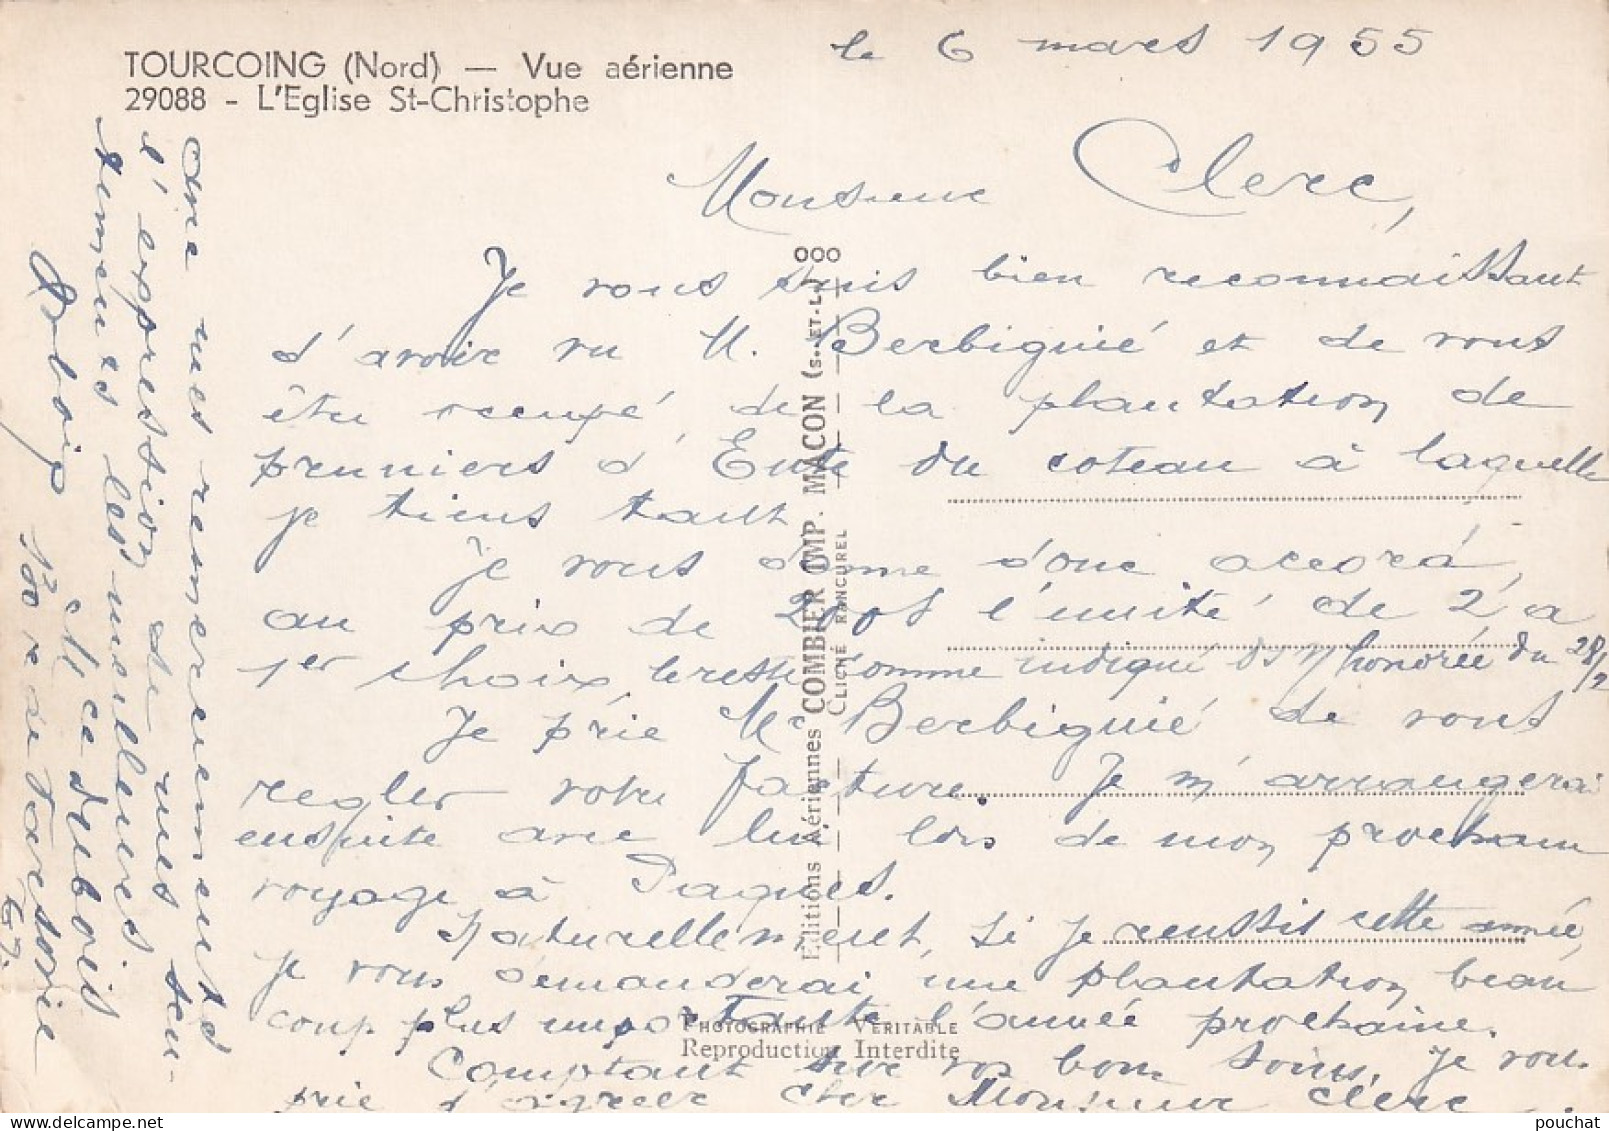 TOURCOING (Nord) — Vue aérienne
29088 - L'Eglise St-Christophe
le 6 mars 1955
Monsieur Clerc,
Je vous suis bien reconnaissant
d'avoir vu M. Berbiguié et de vous
être occupé de la plantation de
pruniers d'Ente du coteau à laquelle
je tiens tant.
Je vous donne donc accord,
au prix de l'unité de 2 a
1er choix, comme indiqué honorée du 28/2
Je prie Mr Berbiguié de vous
regler votre facture. Je m'arrangerai
ensuite avec lui lors de mon prochain
voyage à Paques.
Naturellement, si je reussis cette année,
je vous demanderai une plantation beau
coup plus importante l'année prochaine.
Comptant sur vos bons soins, je vous
prie d'agréer cher Monsieur Clerc
avec mes remerciements
l'expression de mes sen-
timents les meilleurs.
Dubois
Editions Aériennes COMBIER IMP. MACON (S.-ET-L.)
CLICHÉ RANCUREL
PHOTOGRAPHIE VÉRITABLE
Reproduction Interdite
pouchat